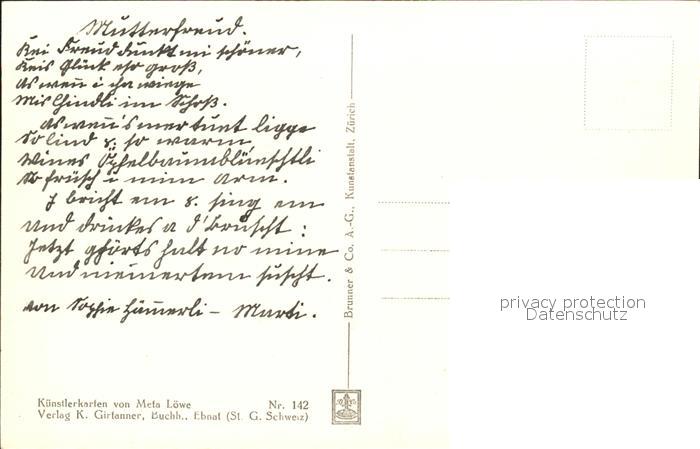 Mutterfreud.
Kei Freud dunkt mi schöner,
Keis Glück eso groß,
As wenn i cha wiege
Mis Chindli im Schoß.
As wenn's mer tuet ligge
So lind & so warm,
Wines Öpfelbaumblüeschtli
So früsch i mim Arm.
I bricht em & sing em
und drückes a d'Bruscht:
Jetzt ghörts halt no mine
und niemertem suscht.
von Sophie Hämmerli-Marti.
Künstlerkarten von Meta Löwe Nr. 142
Verlag K. Girtanner, Buchh., Ebnat (St. G. Schweiz)
Brunner & Co. A.-G., Kunstanstalt, Zürich
privacy protection
Datenschutz